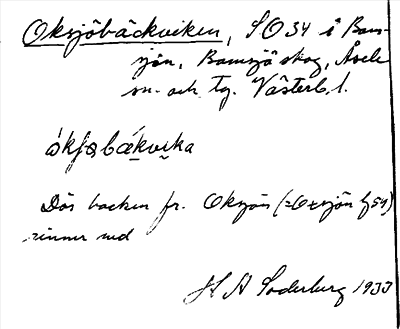 Oksjöbäckviken, SO34 i Bam-
sjön, Bamsjöskog, Åsele
sn. och tg. Västerb. l.
ókfəbákvika
Där backen fr. Oksjön (=Oxsjön
rinner ned
H A Soderberg 1933